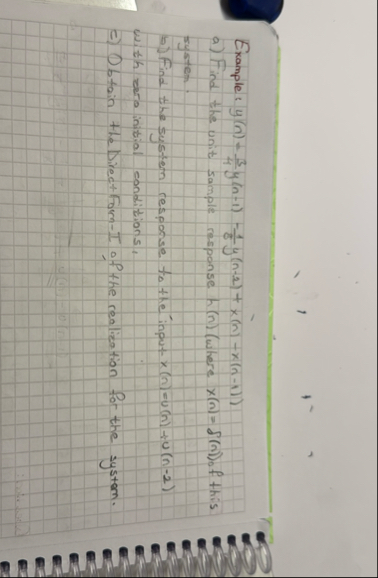 Example: y(n) = 3/4 y(n-1) - 1/8 y(n-2) + x(n) - x(n-1))
a) Find the unit sample response h(n) (where x(n)=δ(n)) of this
system.
b) Find the system response to the input x(n)=u(n)+u(n-2)
with zero initial conditions,
c) Obtain the Direct Form-I of the realization for the system.